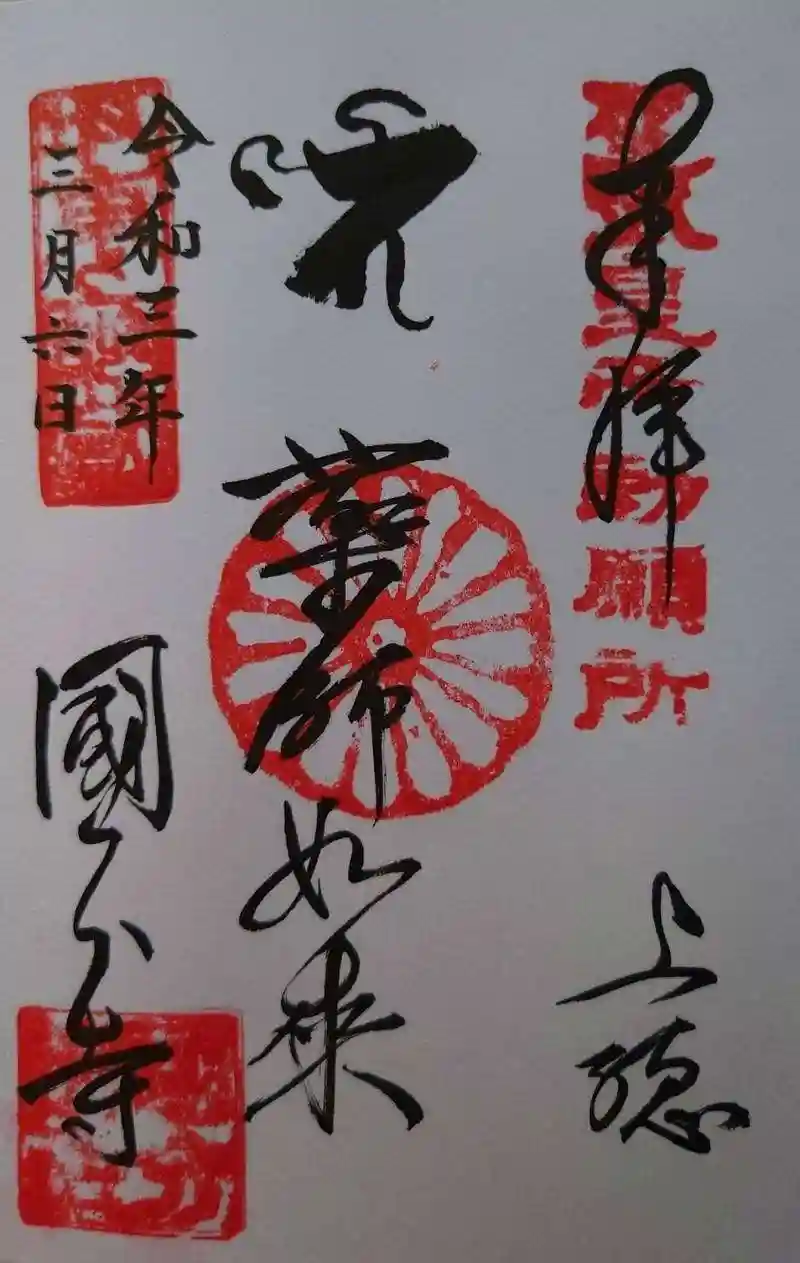 奉拝
聖武皇帝勅願所
上総
薬師如来
令和三年
三月六日
國分寺